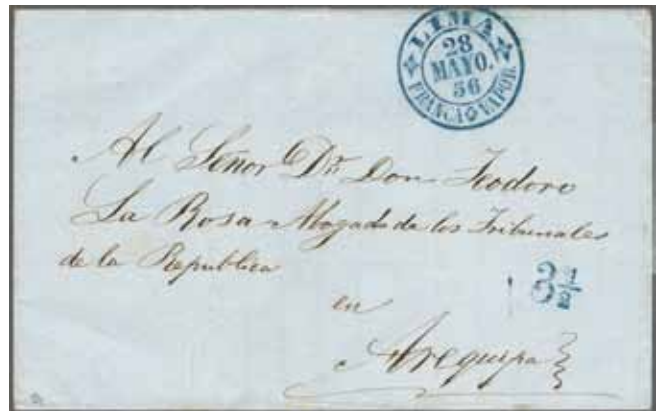 LIMA
28
MAYO.
56
FRANCA VAPOR.
Al Señor Dr. Don Teodoro
La Rosa Abogado de los Tribunales
de la Republica
3 1/2
en
Arequipa